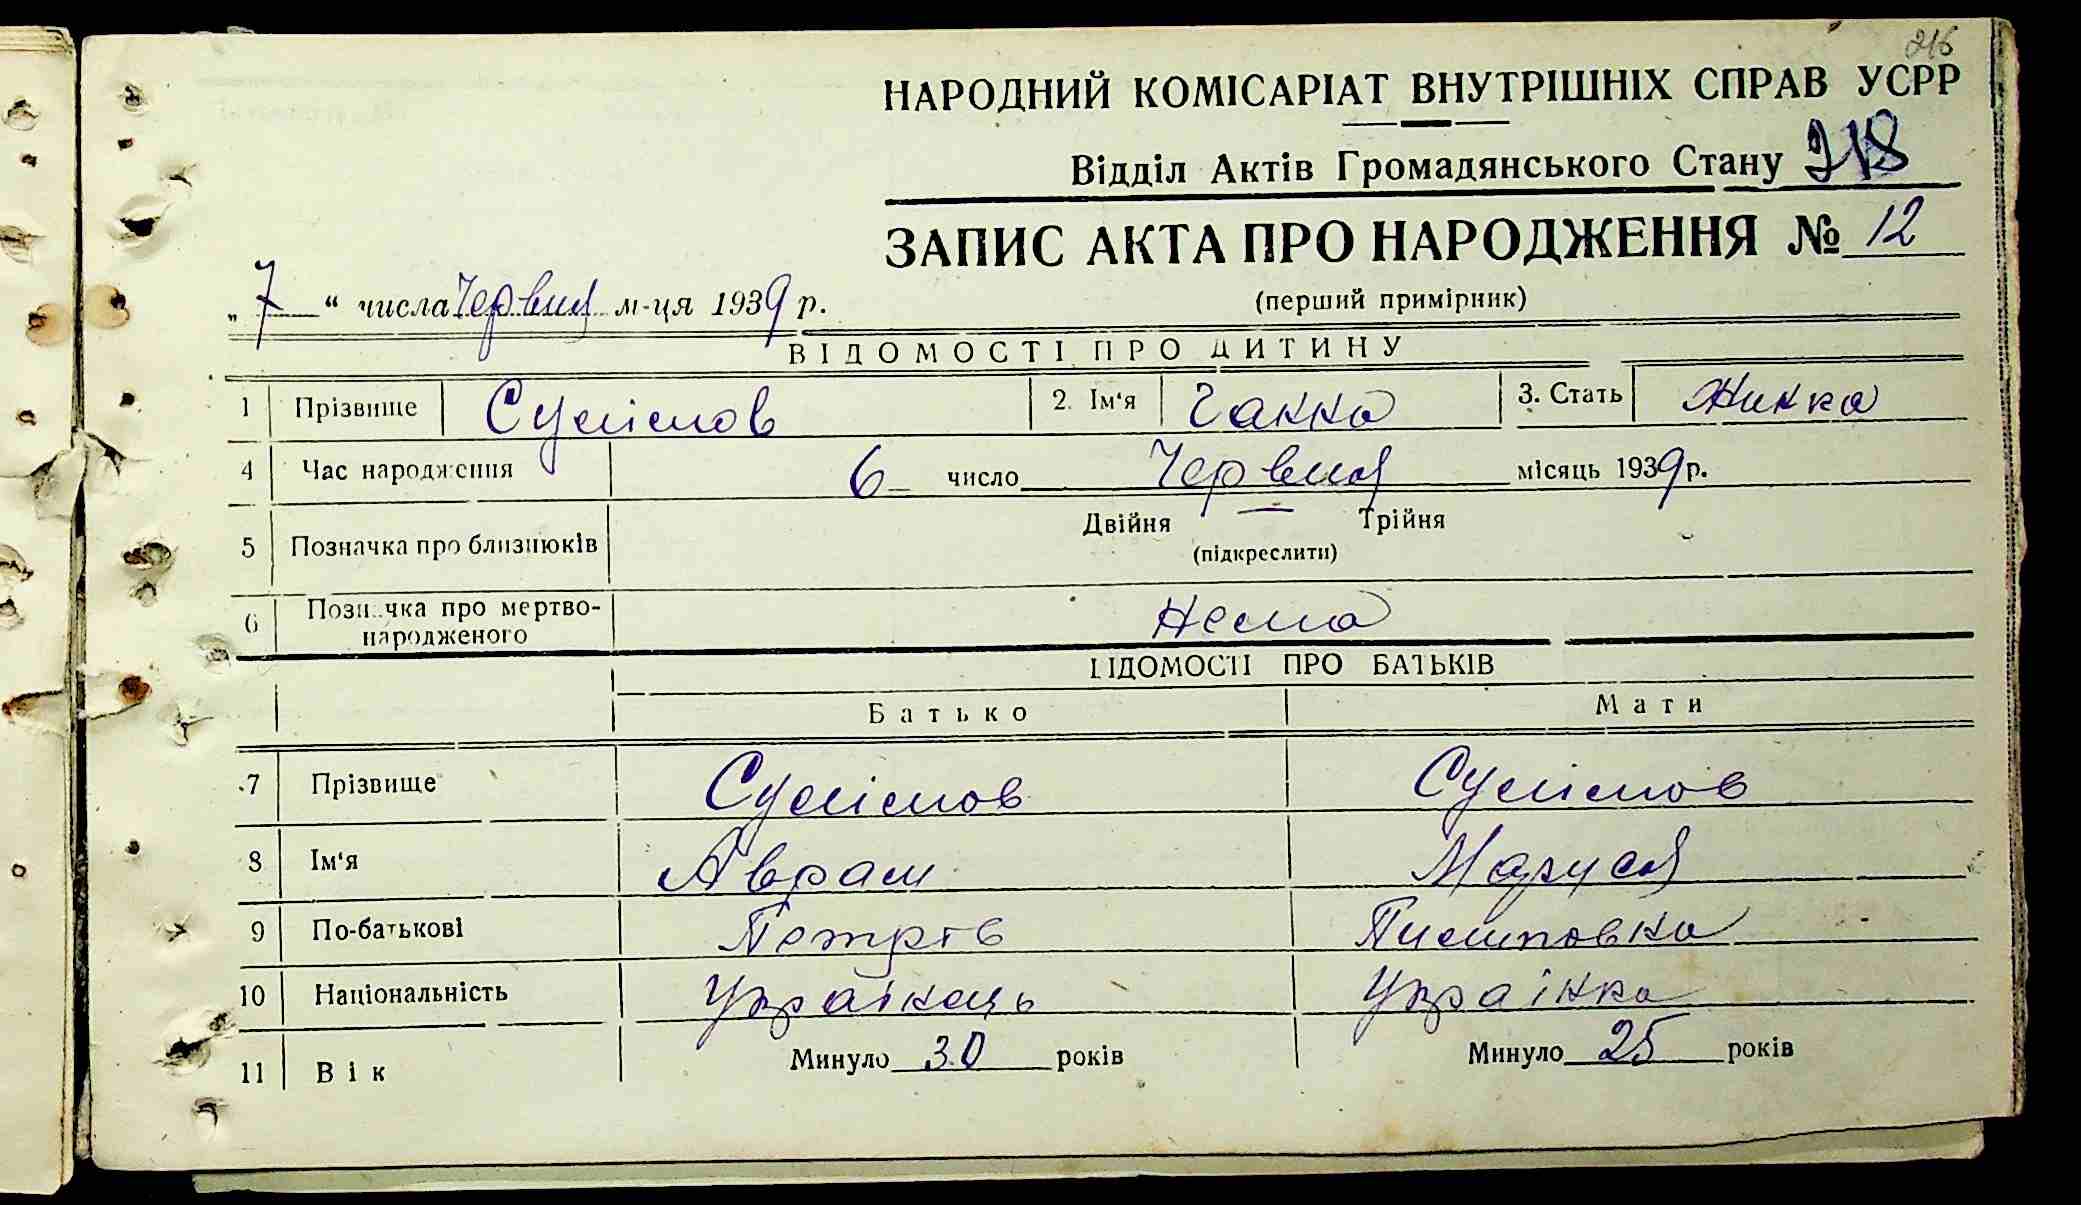 216
НАРОДНИЙ КОМІСАРІАТ ВНУТРІШНІХ СПРАВ УСРР
Відділ Актів Громадянського Стану 218
ЗАПИС АКТА ПРО НАРОДЖЕННЯ № 12
„ 7 “ числа Червня м-ця 1939 р.
(перший примірник)
ВІДОМОСТІ ПРО ДИТИНУ
1 Прізвище Сулімов 2. Ім'я Ганна 3. Стать Жинка
4 Час народження 6 число Червня місяць 1939 р.
5 Позначка про близнюків Двійня — Трійня
(підкреслити)
6 Позначка про мертво-
народженого Нема
ВІДОМОСТІ ПРО БАТЬКІВ
Батько Мати
7 Прізвище Сулімов Сулімов
8 Ім'я Аврам Маруся
9 По-батькові Петрів
10 Національність Українець Українка
11 Вік Минуло 30 років Минуло 25 років